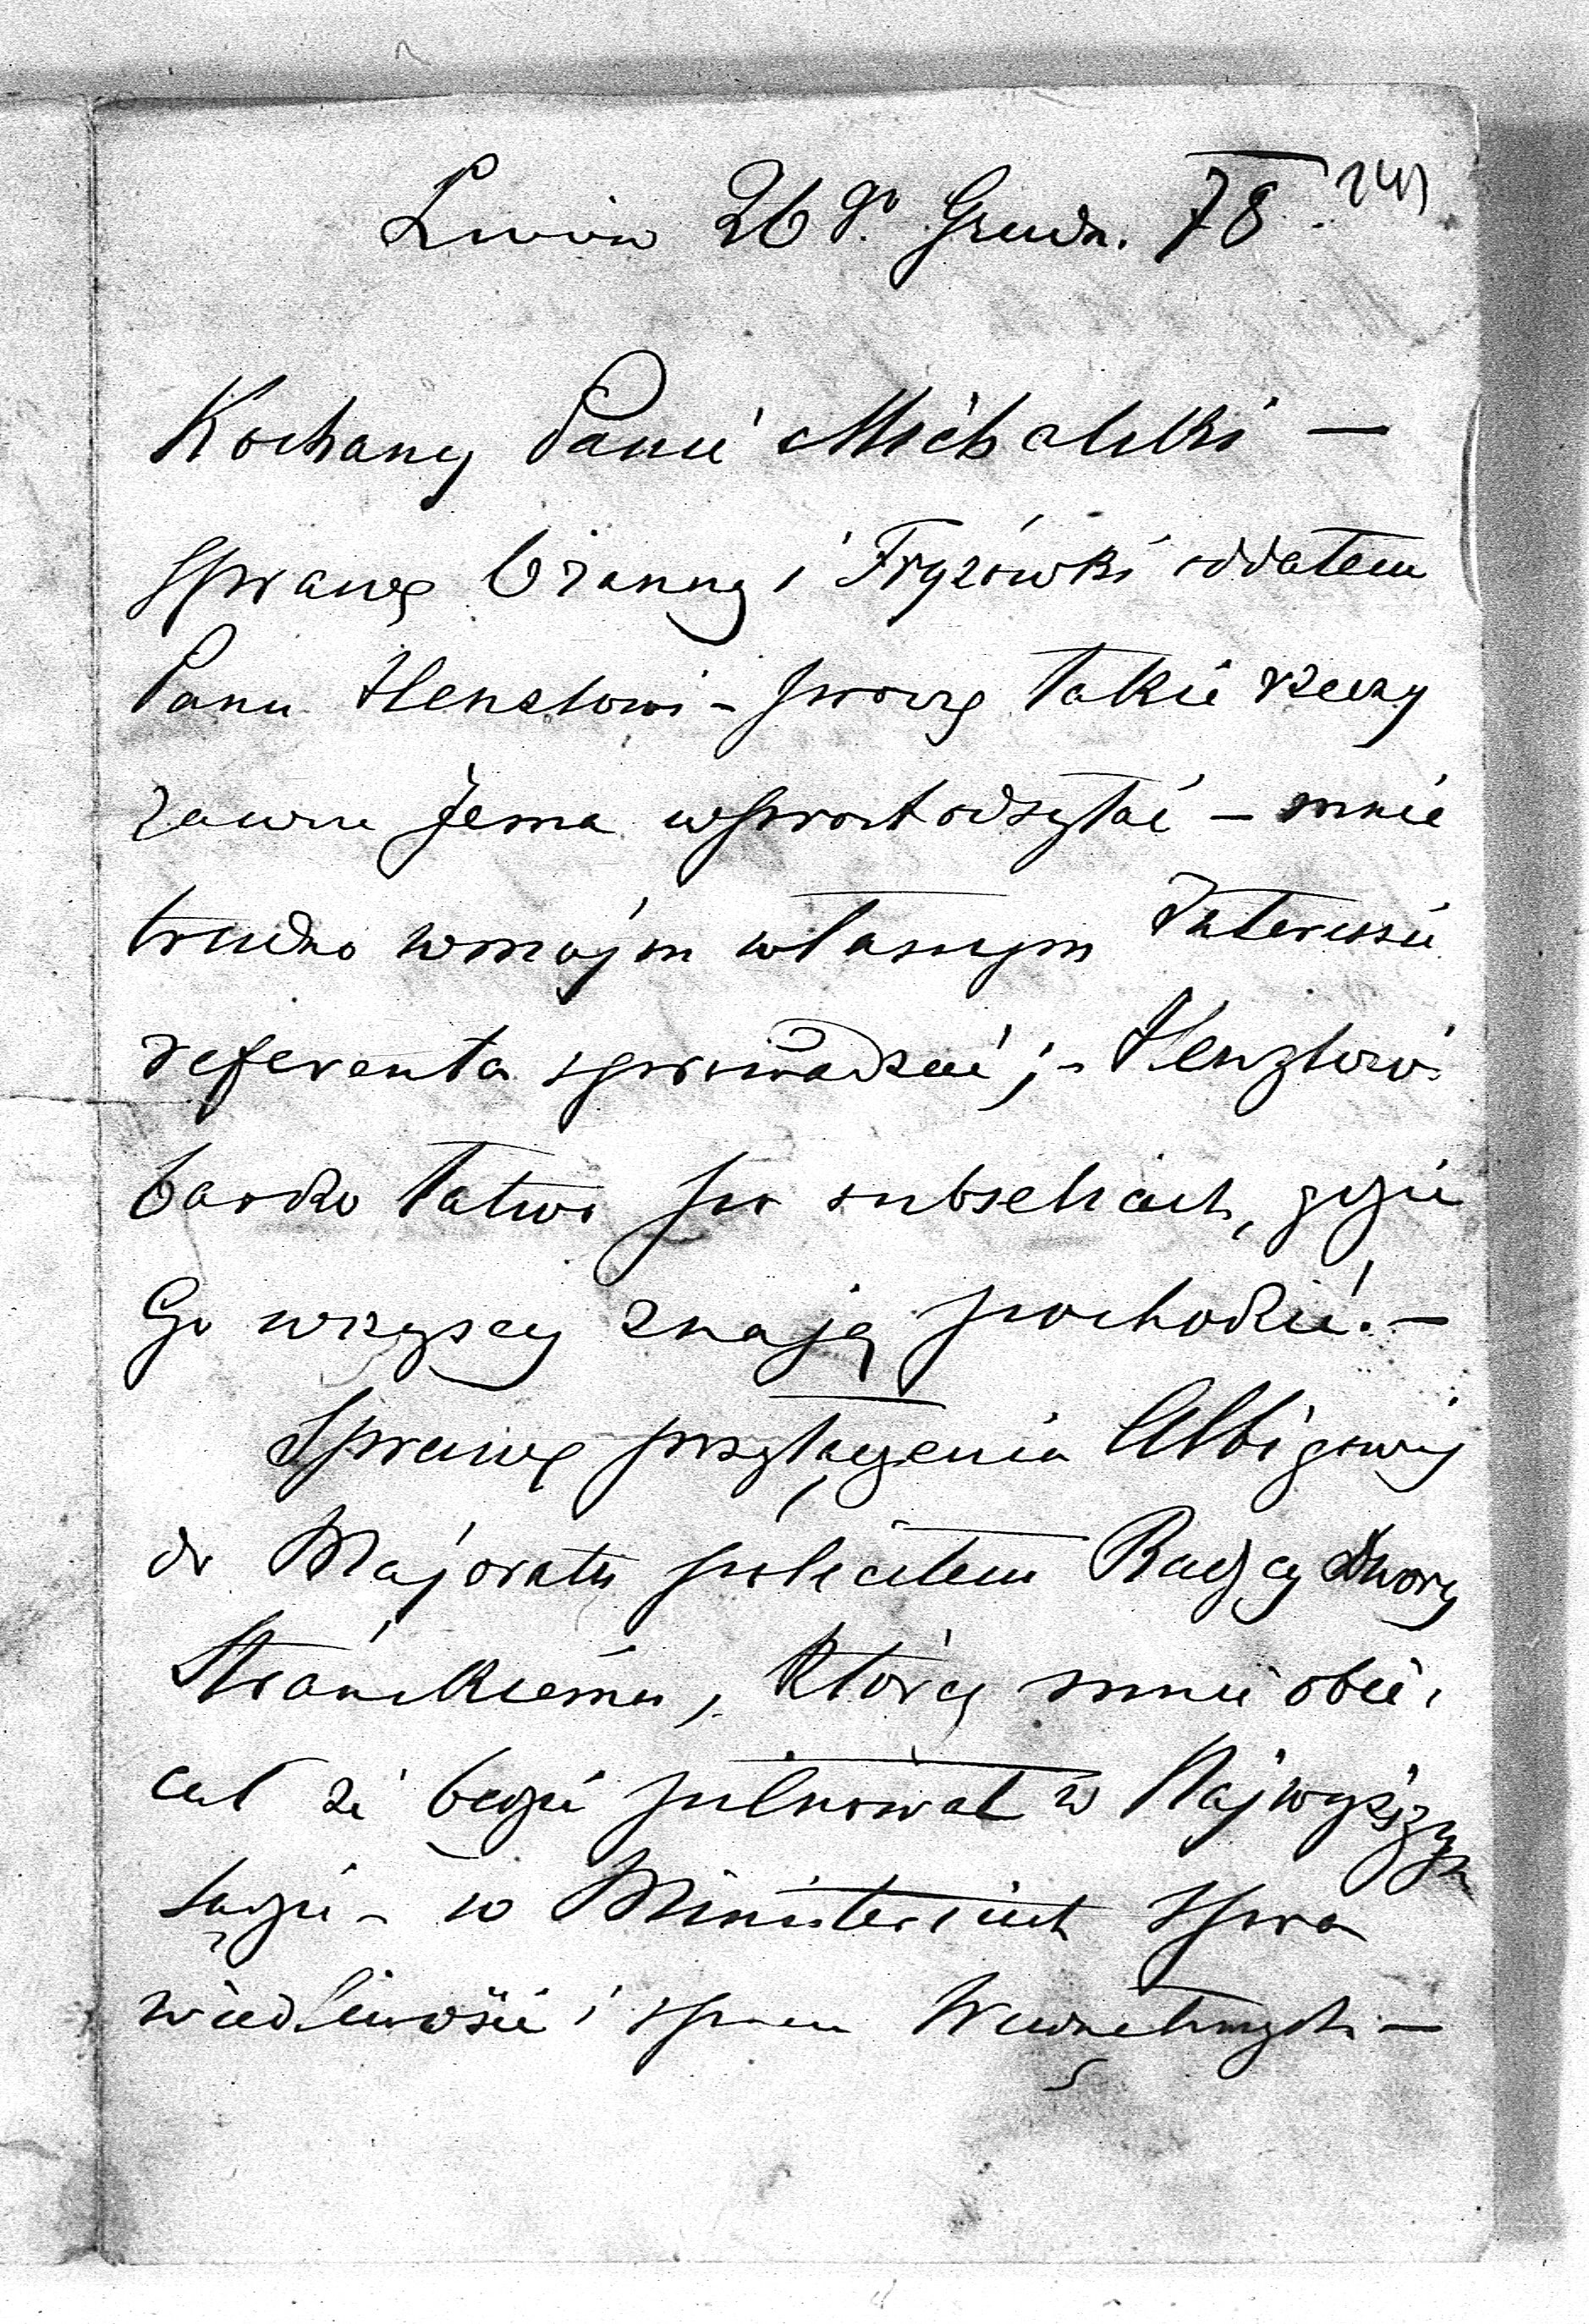 Lwów 26 go Grudn. 78. 241
Kochany Panie Michalski —
Sprawę Brzanny i Fryzówki oddałem
Panu Henzlowi – proszę takie rzeczy
zawsze Jemu wprost odsyłać – mnie
trudno w mojem własnym Interessie
referenta sprowadzać; – Henzlowi
bardzo łatwo po subseliach, gdzie
Go wszyscy znają pochodzić. –
Sprawę przyłączenia Albigowy
do Majoratu poleciłem Radzcy Dworu
Strańskiemu, który mnie obie,
cał że będzie pilnował w Najwyższym
sądzie – w Ministeriach spra
wiedliwości i spraw Wewnętrznych –